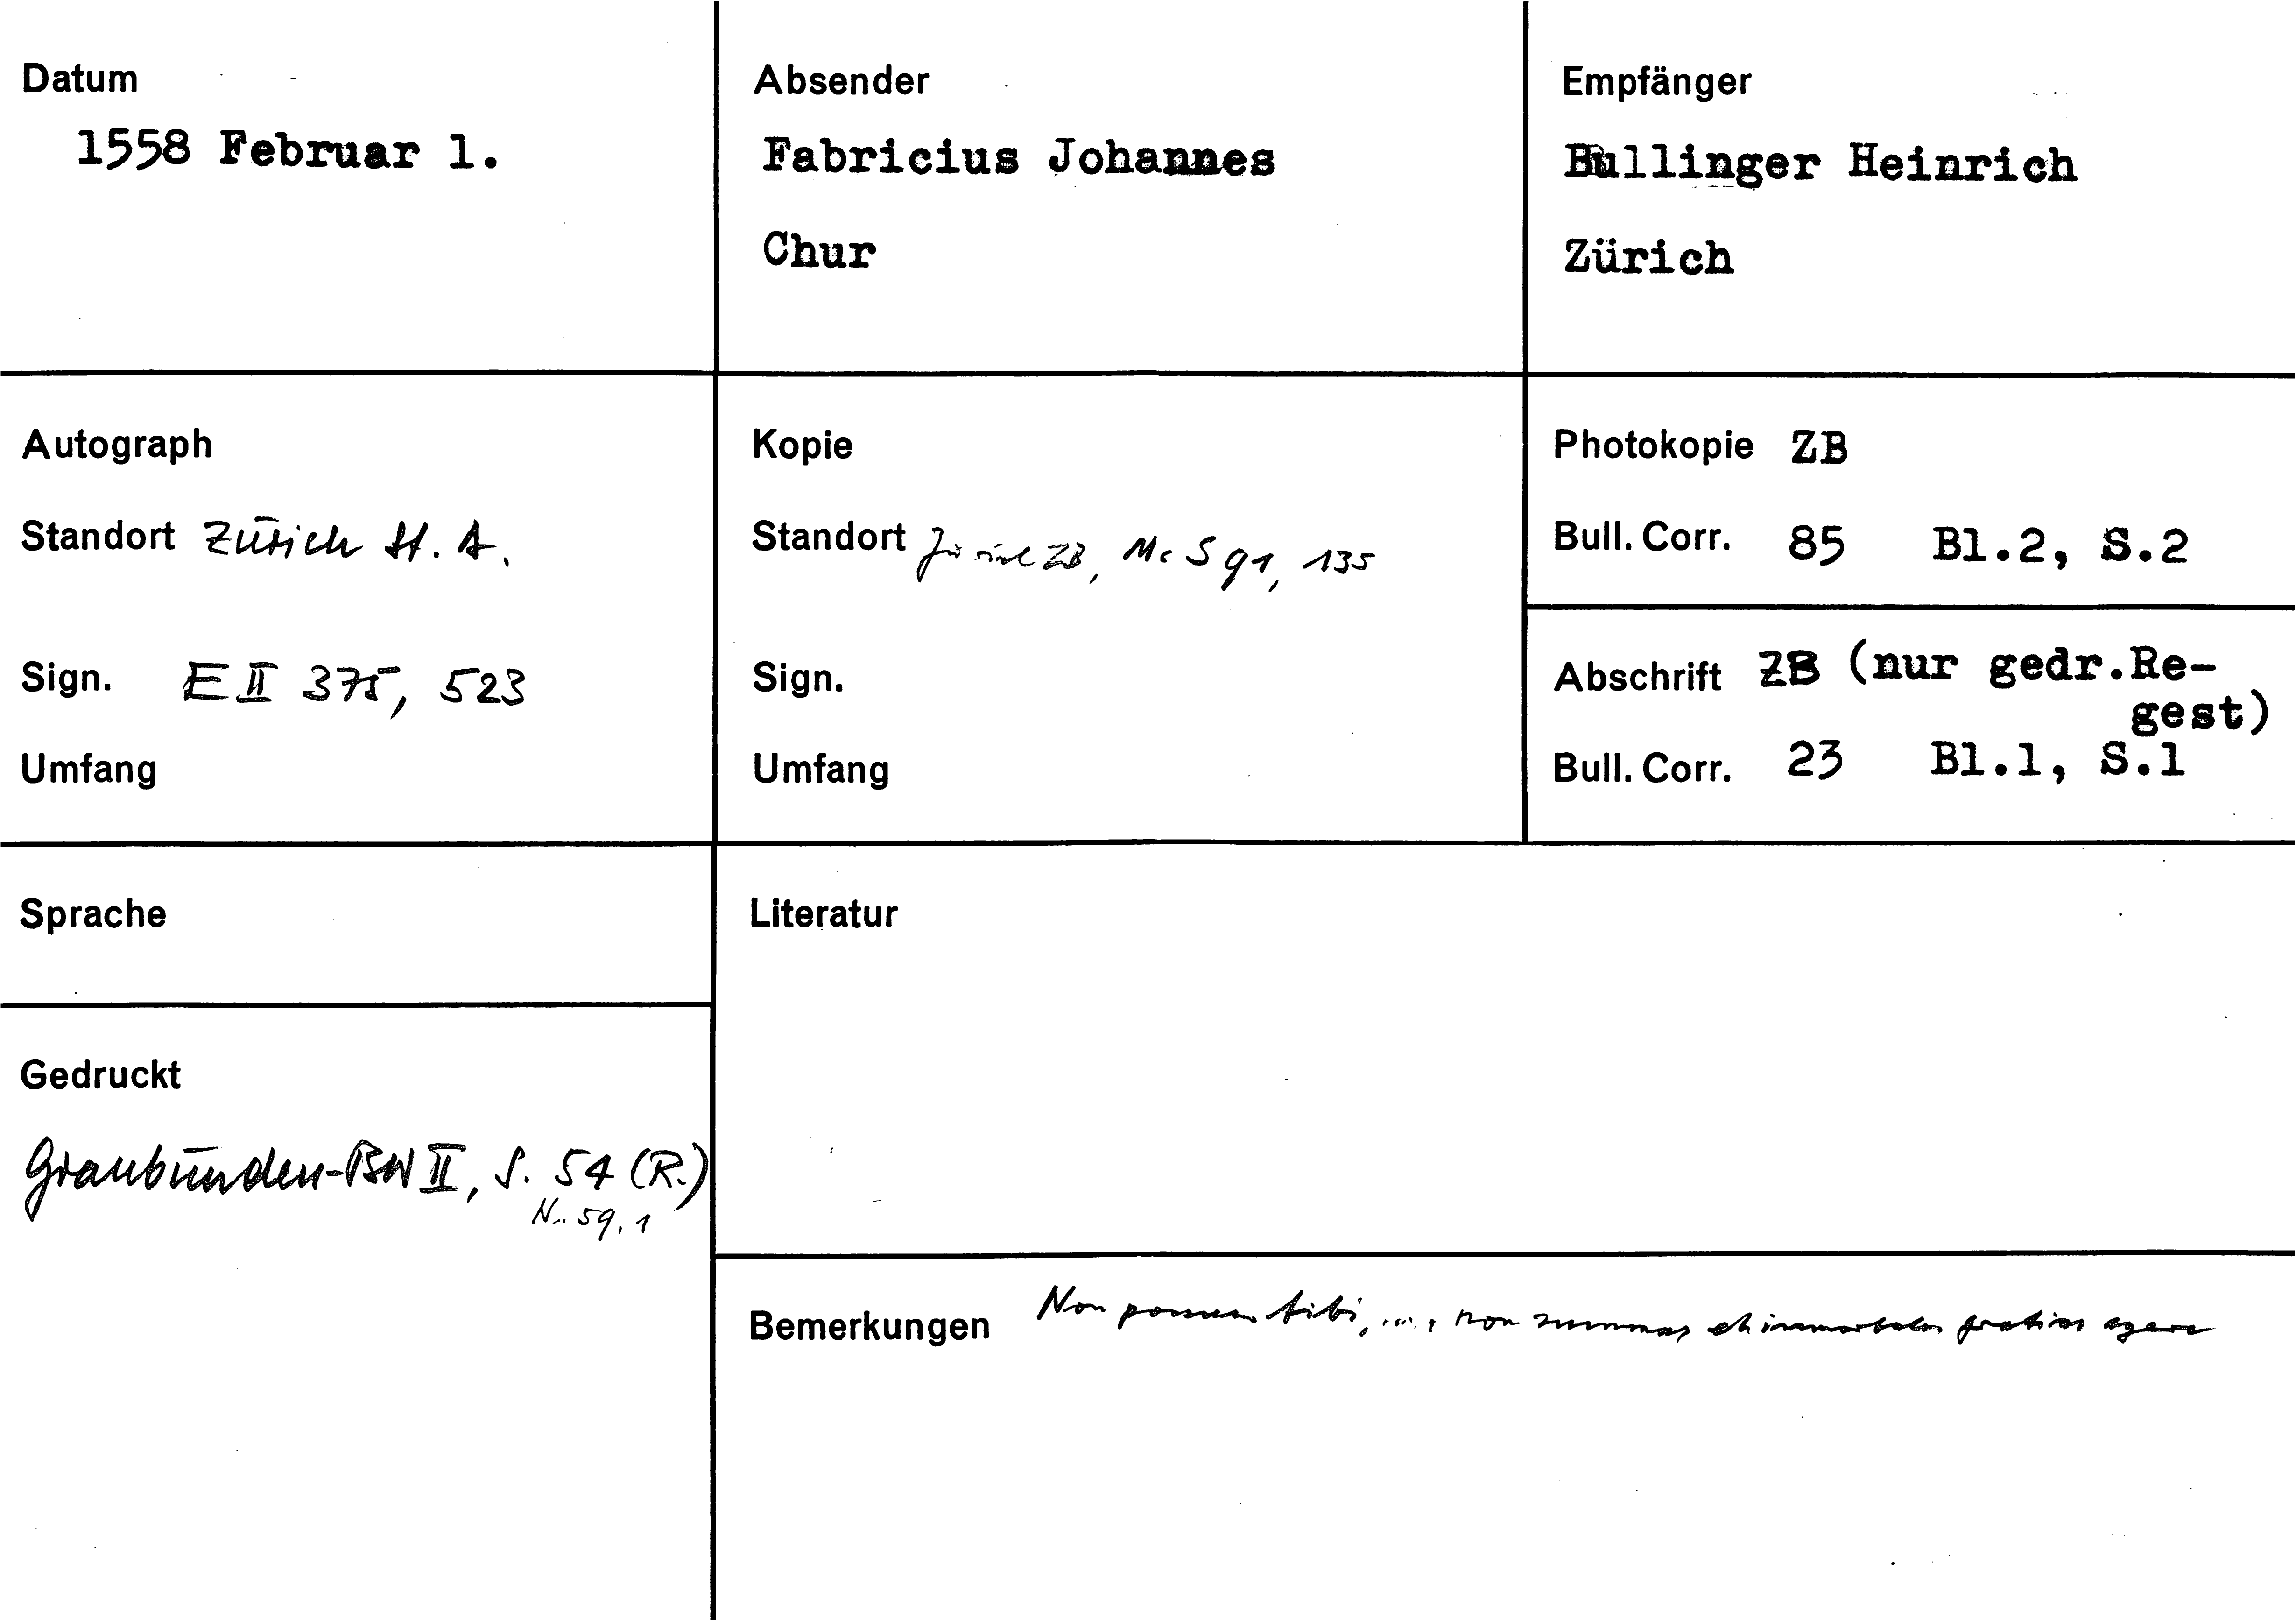 Datum
1558 Februar 1.
Absender
Fabricius Johannes
Chur
Empfänger
Bullinger Heinrich
Zürich
Autograph
Standort Zürich St. A.
Sign. E II 375, 523
Umfang
Kopie
Standort Zürich ZB, Ms S 91, 135
Sign.
Umfang
Photokopie ZB
Bull. Corr. 85 Bl.2, S.2
Abschrift ZB (nur gedr.Re-
gest)
Bull. Corr. 23 Bl.1, S.1
Sprache
Literatur
Gedruckt
Graubünden-BW II, S. 54 (R.)
Nr. 59, 1
Bemerkungen Non possum tibi, ...., non summas et immortales gratias agere